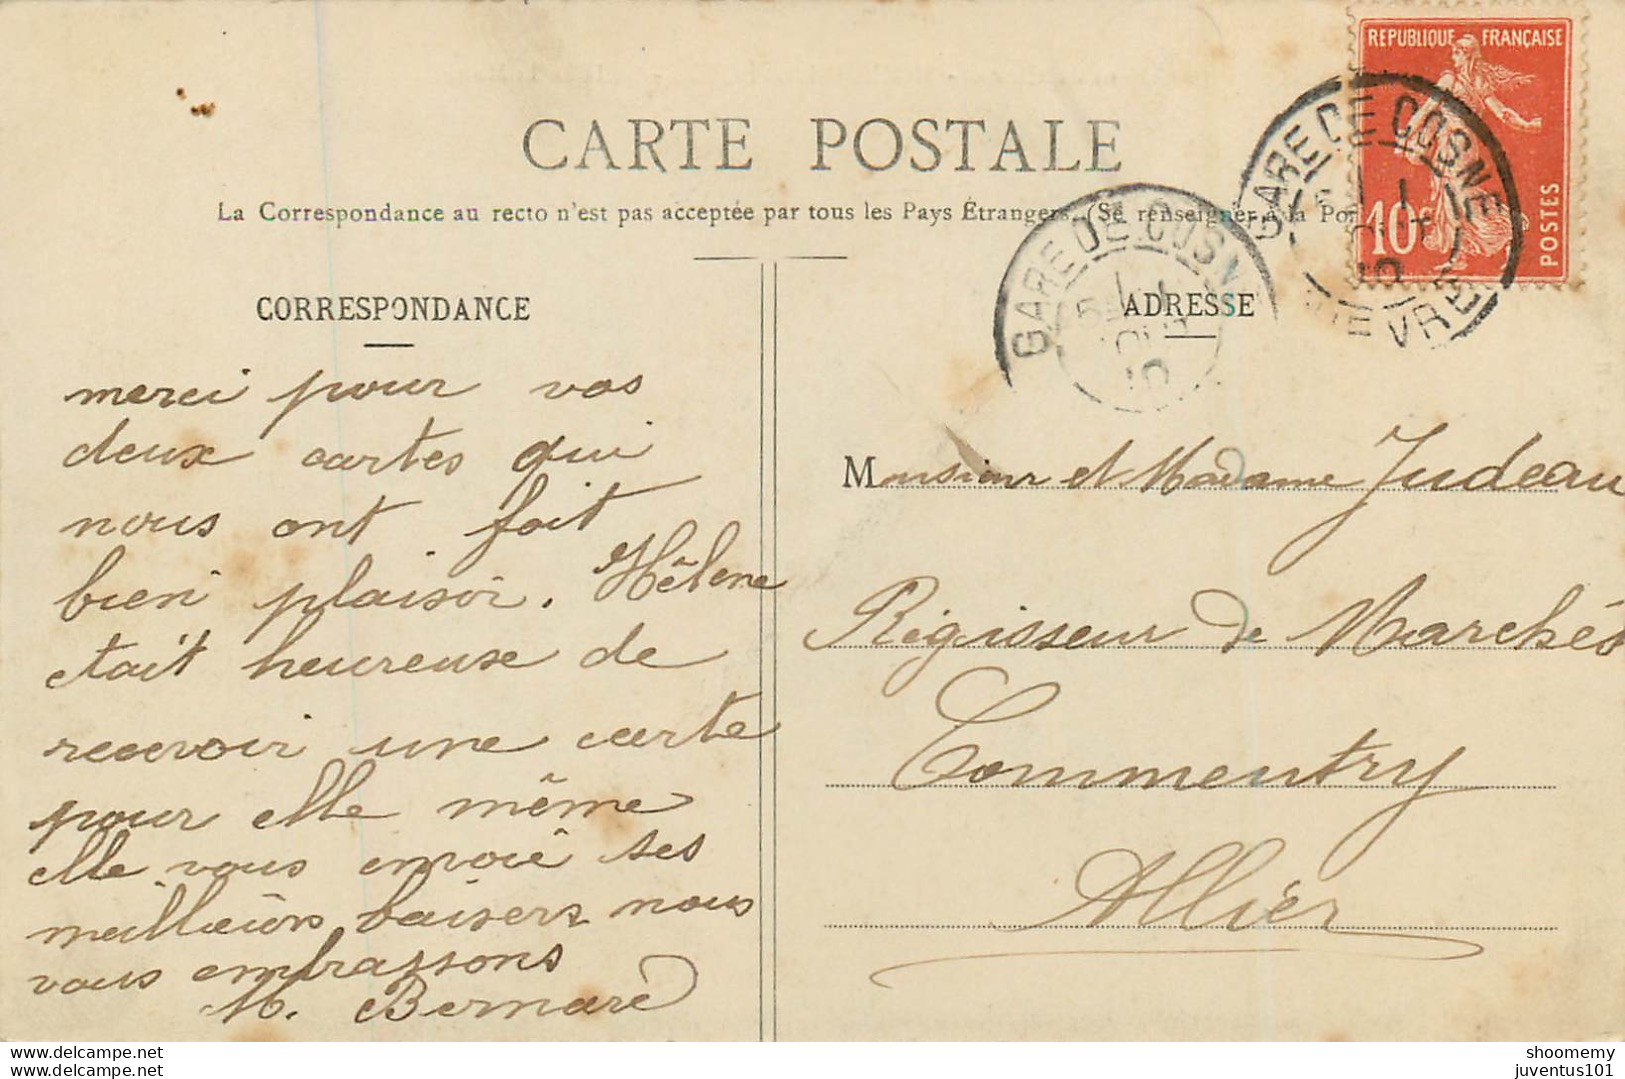 REPUBLIQUE FRANÇAISE
10
POSTES
GARE DE COSNE
GARE DE COSN
CARTE POSTALE
La Correspondance au recto n'est pas acceptée par tous les Pays Étrangers. (Se renseigner à la Po
CORRESPONDANCE
merci pour vos
deux cartes qui
nous ont fait
bien plaisir. Hélène
etait heureuse de
recevoir une carte
pour elle même
elle vous envoie ses
meilleurs baisers nous
vous embrassons
M. Bernard
ADRESSE
Monsieur et Madame Judeau
Régisseur de Marchés
Commentry
Allier
www.delcampe.net
www.delcampe.net
shoomemy
juventus101